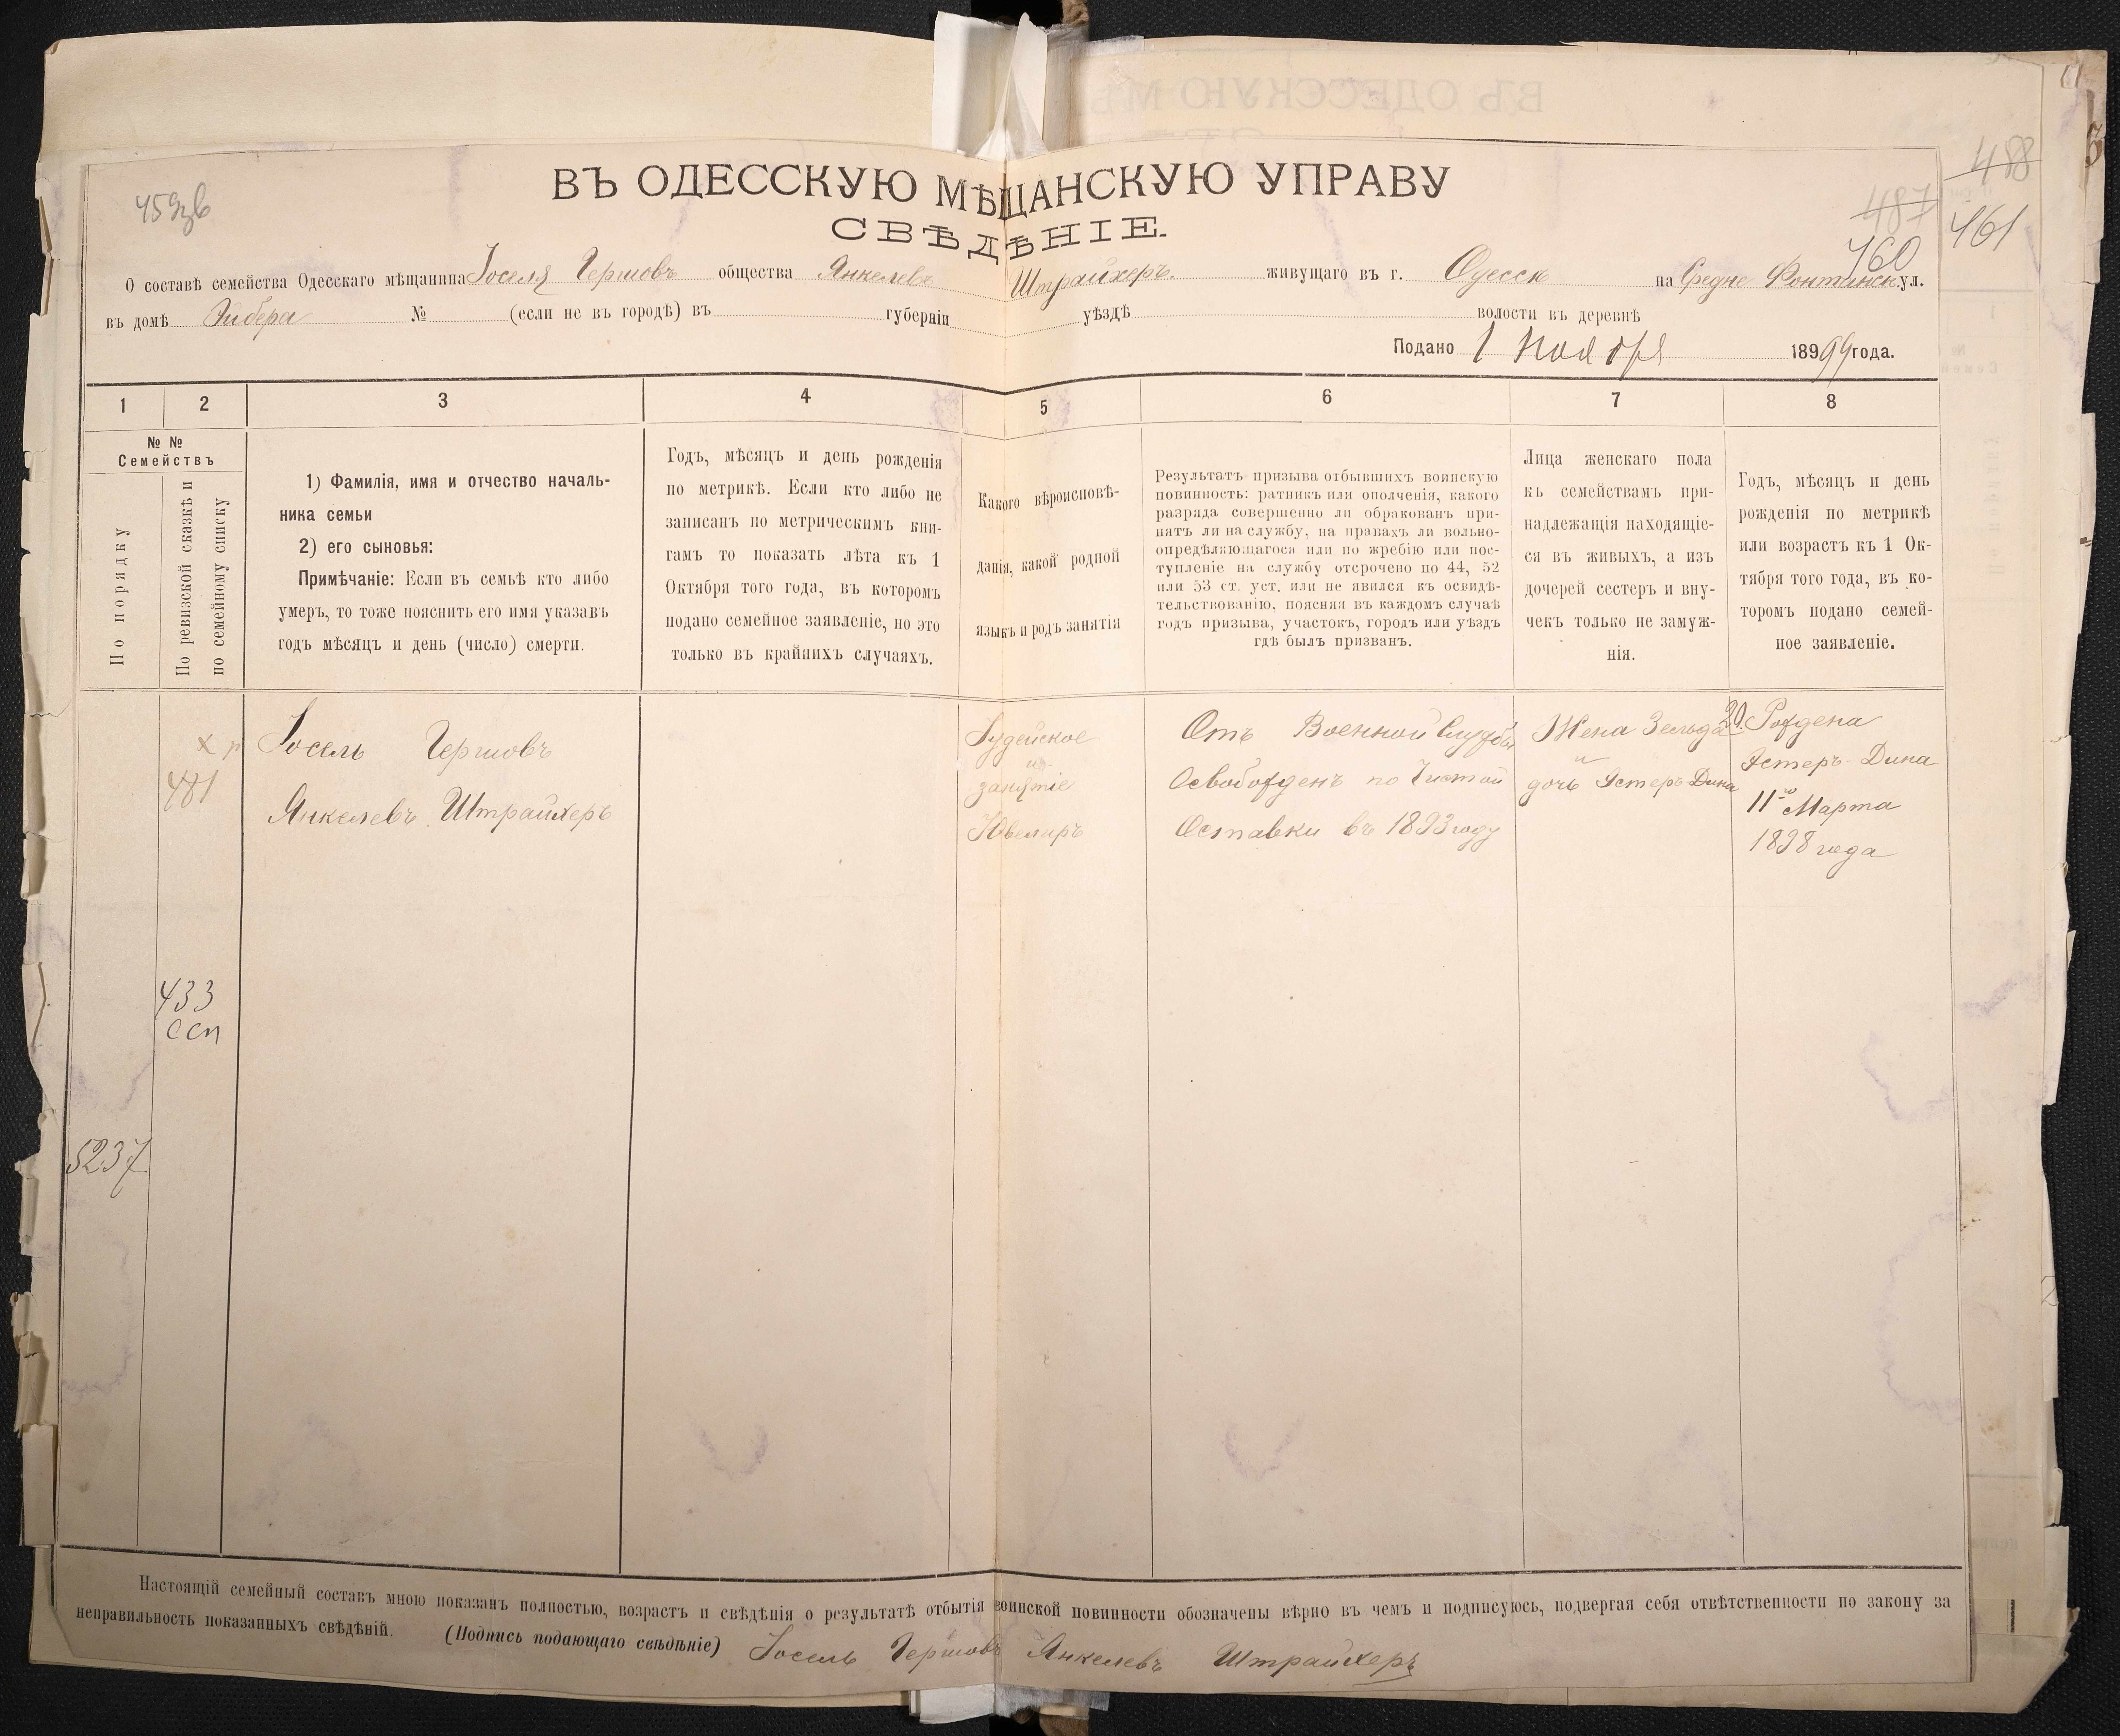 ВЪ ОДЕССКУЮ МѢЩАНСКУЮ УПРАВУ
СВѢДѢНІЕ.
488
487
461
460
О составѣ семейства Одесскаго мѣщанина Іоселя Гершовъ общества Янкелевъ Штрайхеръ. живущаго въ г. Одесск на Средне Фонтанск ул.
въ домѣ № (если не въ городѣ) въ губерніи уѣздѣ волости въ деревнѣ
Подано 1 Ноября 18999 года.
1 2 3 4 5 6 7 8
№ № Семействъ
По порядку
По ревизской сказкѣ и
по семейному списку
1) Фамилія, имя и отчество началь-
ника семьи
2) его сыновья:
Примѣчаніе: Если въ семьѣ кто либо
умеръ, то тоже пояснить его имя указавъ
годъ мѣсяцъ и день (число) смерти.
Годъ, мѣсяцъ и день рожденія
по метрикѣ. Если кто либо не
записанъ по метрическимъ кни-
гамъ то показать лѣта къ 1
Октября того года, въ которомъ
подано семейное заявленіе, но это
только въ крайнихъ случаяхъ.
Какого вѣроисповѣ-
данія, какой родной
языкъ и родъ занятія
Результатъ призыва отбывшихъ воинскую
повинность: ратникъ или ополченія, какого
разряда совершенно ли обракованъ при-
нятъ ли на службу, на правахъ ли вольно-
опредѣляющагося или по жребію или пос-
тупленіе на службу отсрочено по 44, 52
или 53 ст. уст. или не явился къ освидѣ-
тельствованію, поясняя въ каждомъ случаѣ
годъ призыва, участокъ, городъ или уѣздъ
гдѣ былъ призванъ.
Лица женскаго пола
къ семействамъ при-
надлежащія находящіе-
ся въ живыхъ, а изъ
дочерей сестеръ и вну-
чекъ только не замуж-
нія.
Годъ, мѣсяцъ и день
рожденія по метрикѣ
или возрастъ къ 1 Ок-
тября того года, въ ко-
торомъ подано семей-
ное заявленіе.
481
433
ссп
5237
Іосель Гершовъ
Янкелевъ Штрайхеръ
Іудейское
из.
занятіе
Ювелиръ
Отъ Военной Службы
Освобожденъ по Чистой
Оставки въ 1893 году
Жена Зельда 20
и
дочь Эстеръ-Дина
Рождена
Эстеръ-Дина
11го Марта
1898 года
Настоящій семейный составъ мною показанъ полностью, возрастъ и свѣдѣнія о результатѣ отбытія воинской повинности обозначены вѣрно въ чемъ и подписуюсь, подвергая себя отвѣтственности по закону за
неправильность показанныхъ свѣдѣній. (Подпись подающаго свѣдѣніе) Іосель Гершовъ Янкелевъ Штрайхеръ